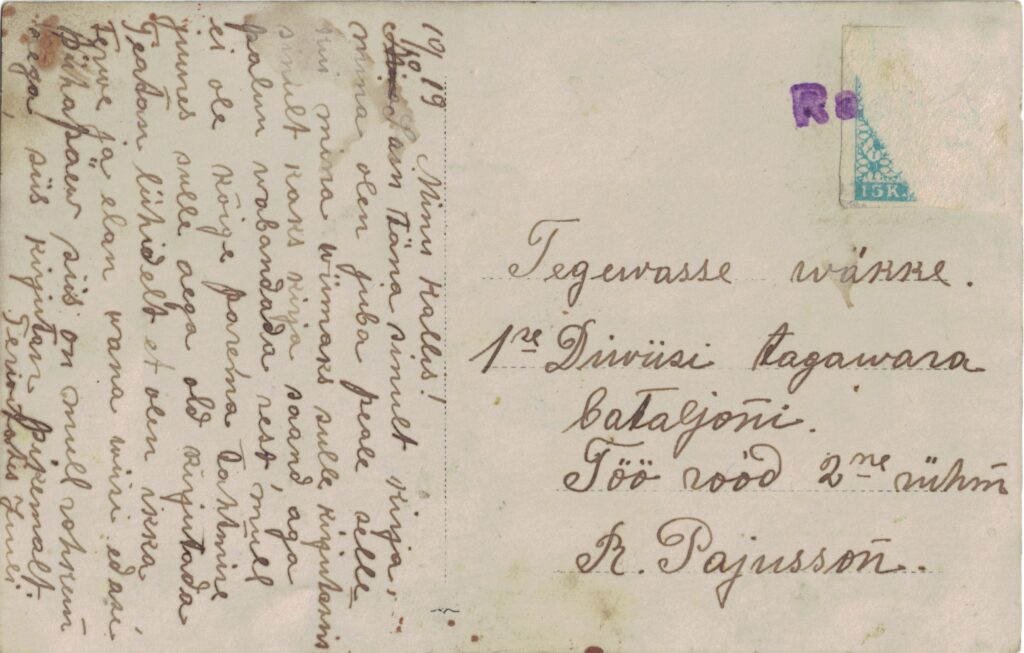 19 10/X 19
Minu kallis!
Sain täna sinult kirja,
mina olen juba peale selle
kui mina wiimaks sulle kirjutasin
sinult kaks kirja saand aga
palun wabandada sest muel
ei ole kõige parema tahtmise
juures sulle aega old kirjutada
Teatan lühidelt et olen ikka
terve ja elan wana wiisi edasi
pühapäew siis on mull rohkem
aega, siis kirjutan pikemalt
Terwitates Juuli.
Ra
15 K.
Tegewasse wäkke.
1re Diwiisi tagawara
bataljoñi.
Töö rood 2ne rühm̃
R. Pajussoñ.